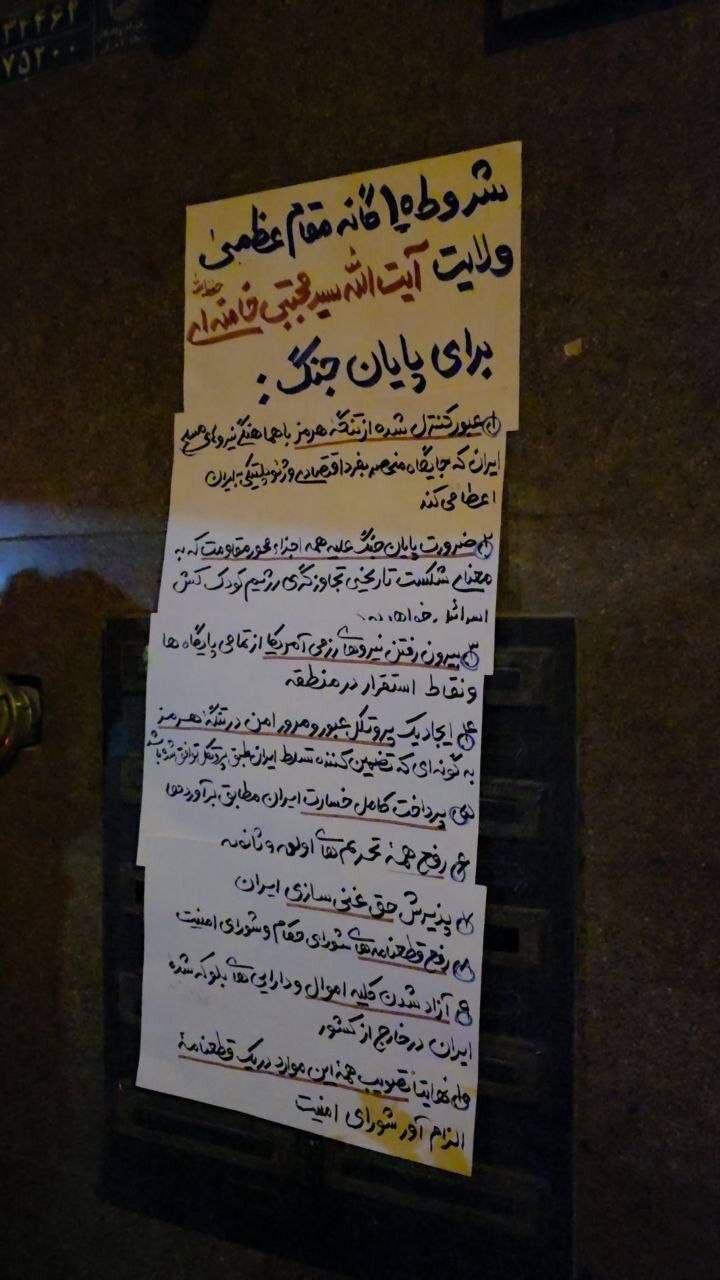 ۳۲۴۶۲
۷۵۲۰۰
شروط ۱۰ گانه مقام عظمیٰ
ولایت آیت الله سید مجتبی خامنه ای
برای پایان جنگ :
۱ عبور کنترل شده از تنگه هرمز با هماهنگی نیروهای مسلح
ایران که جایگاه منحصر بفرد اقتصادی و ژئوپلیتیکی به ایران
اعطا می کند
۲ ضرورت پایان جنگ علیه همه اجزاء محور مقاومت که به
معنای شکست تاریخی تجاوزگری رژیم کودک کش
۳ بیرون رفتن نیروهای رزمی آمریکا از تمامی پایگاه ها
و نقاط استقرار در منطقه
۴ ایجاد یک پروتکل عبور و مرور امن در تنگه هرمز
به گونه ای که تضمین کننده تسلط ایران طبق پروتکل توافق شده باشد
۵ پرداخت کامل خسارت ایران مطابق برآوردها
۶ رفع همۀ تحریم های اولیه و ثانویه
۷ پذیرش حق غنی سازی ایران
۸ رفع قطعنامه های شورای حکام و شورای امنیت
۹ آزاد شدن کلیه اموال و دارایی های بلوکه شده
ایران در خارج از کشور
۱۰ نهایتاً تصویب همۀ این موارد در یک قطعنامۀ
الزام آور شورای امنیت